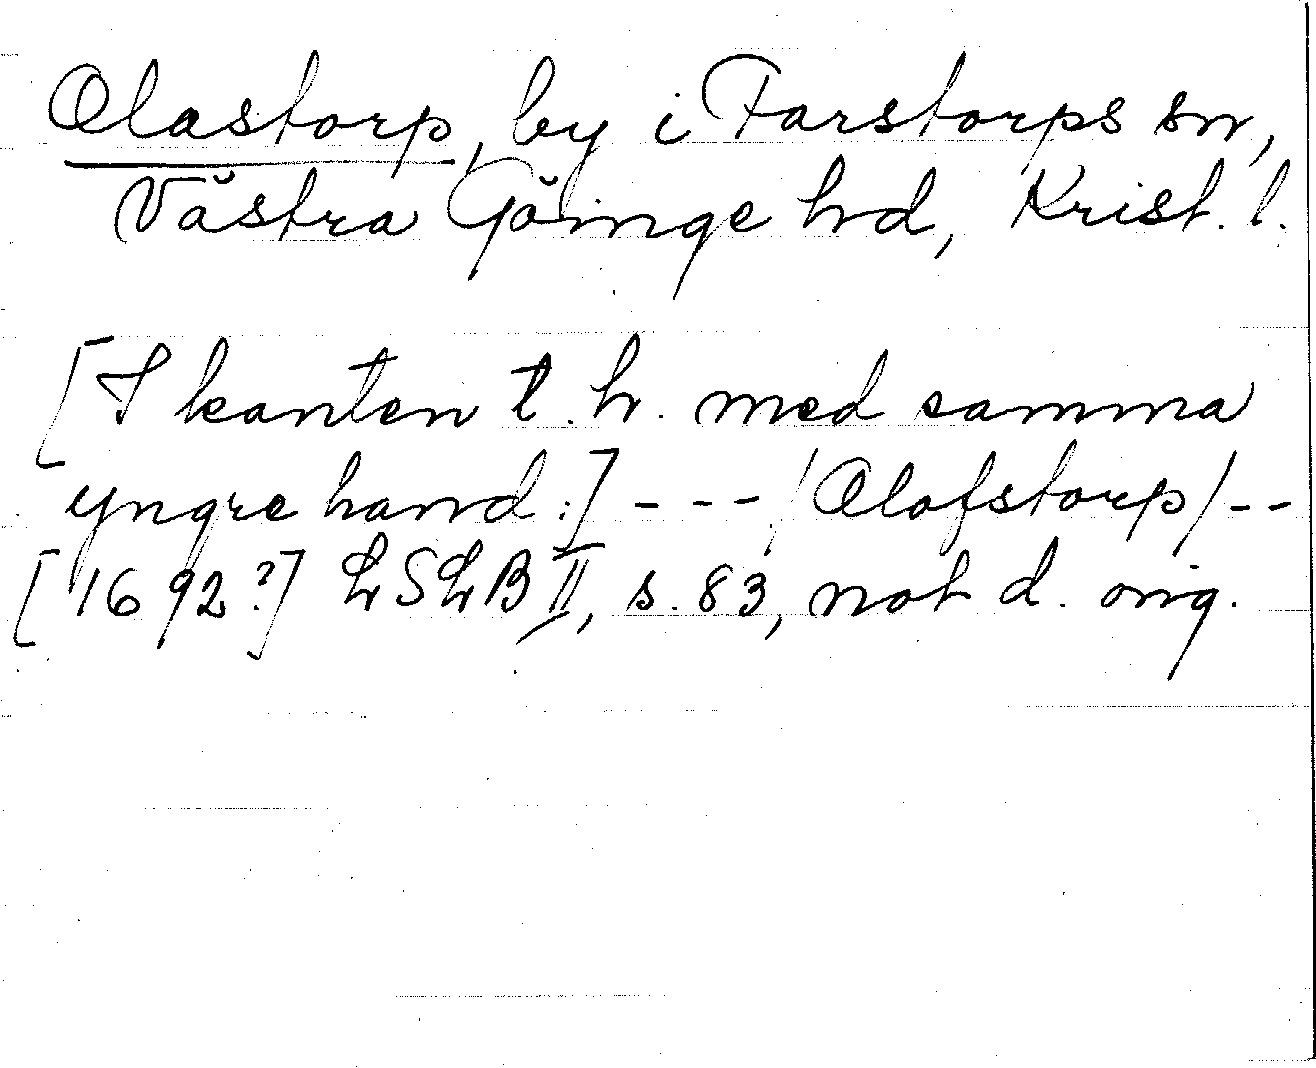 Olastorp, by i Farstorps sn,
Västra Göinge hd, Krist. l.
[I kanten t. h. med samma
yngre hand:] --- /Olofstorp/--
[1692?] LSLB II, s. 83, not d. orig.